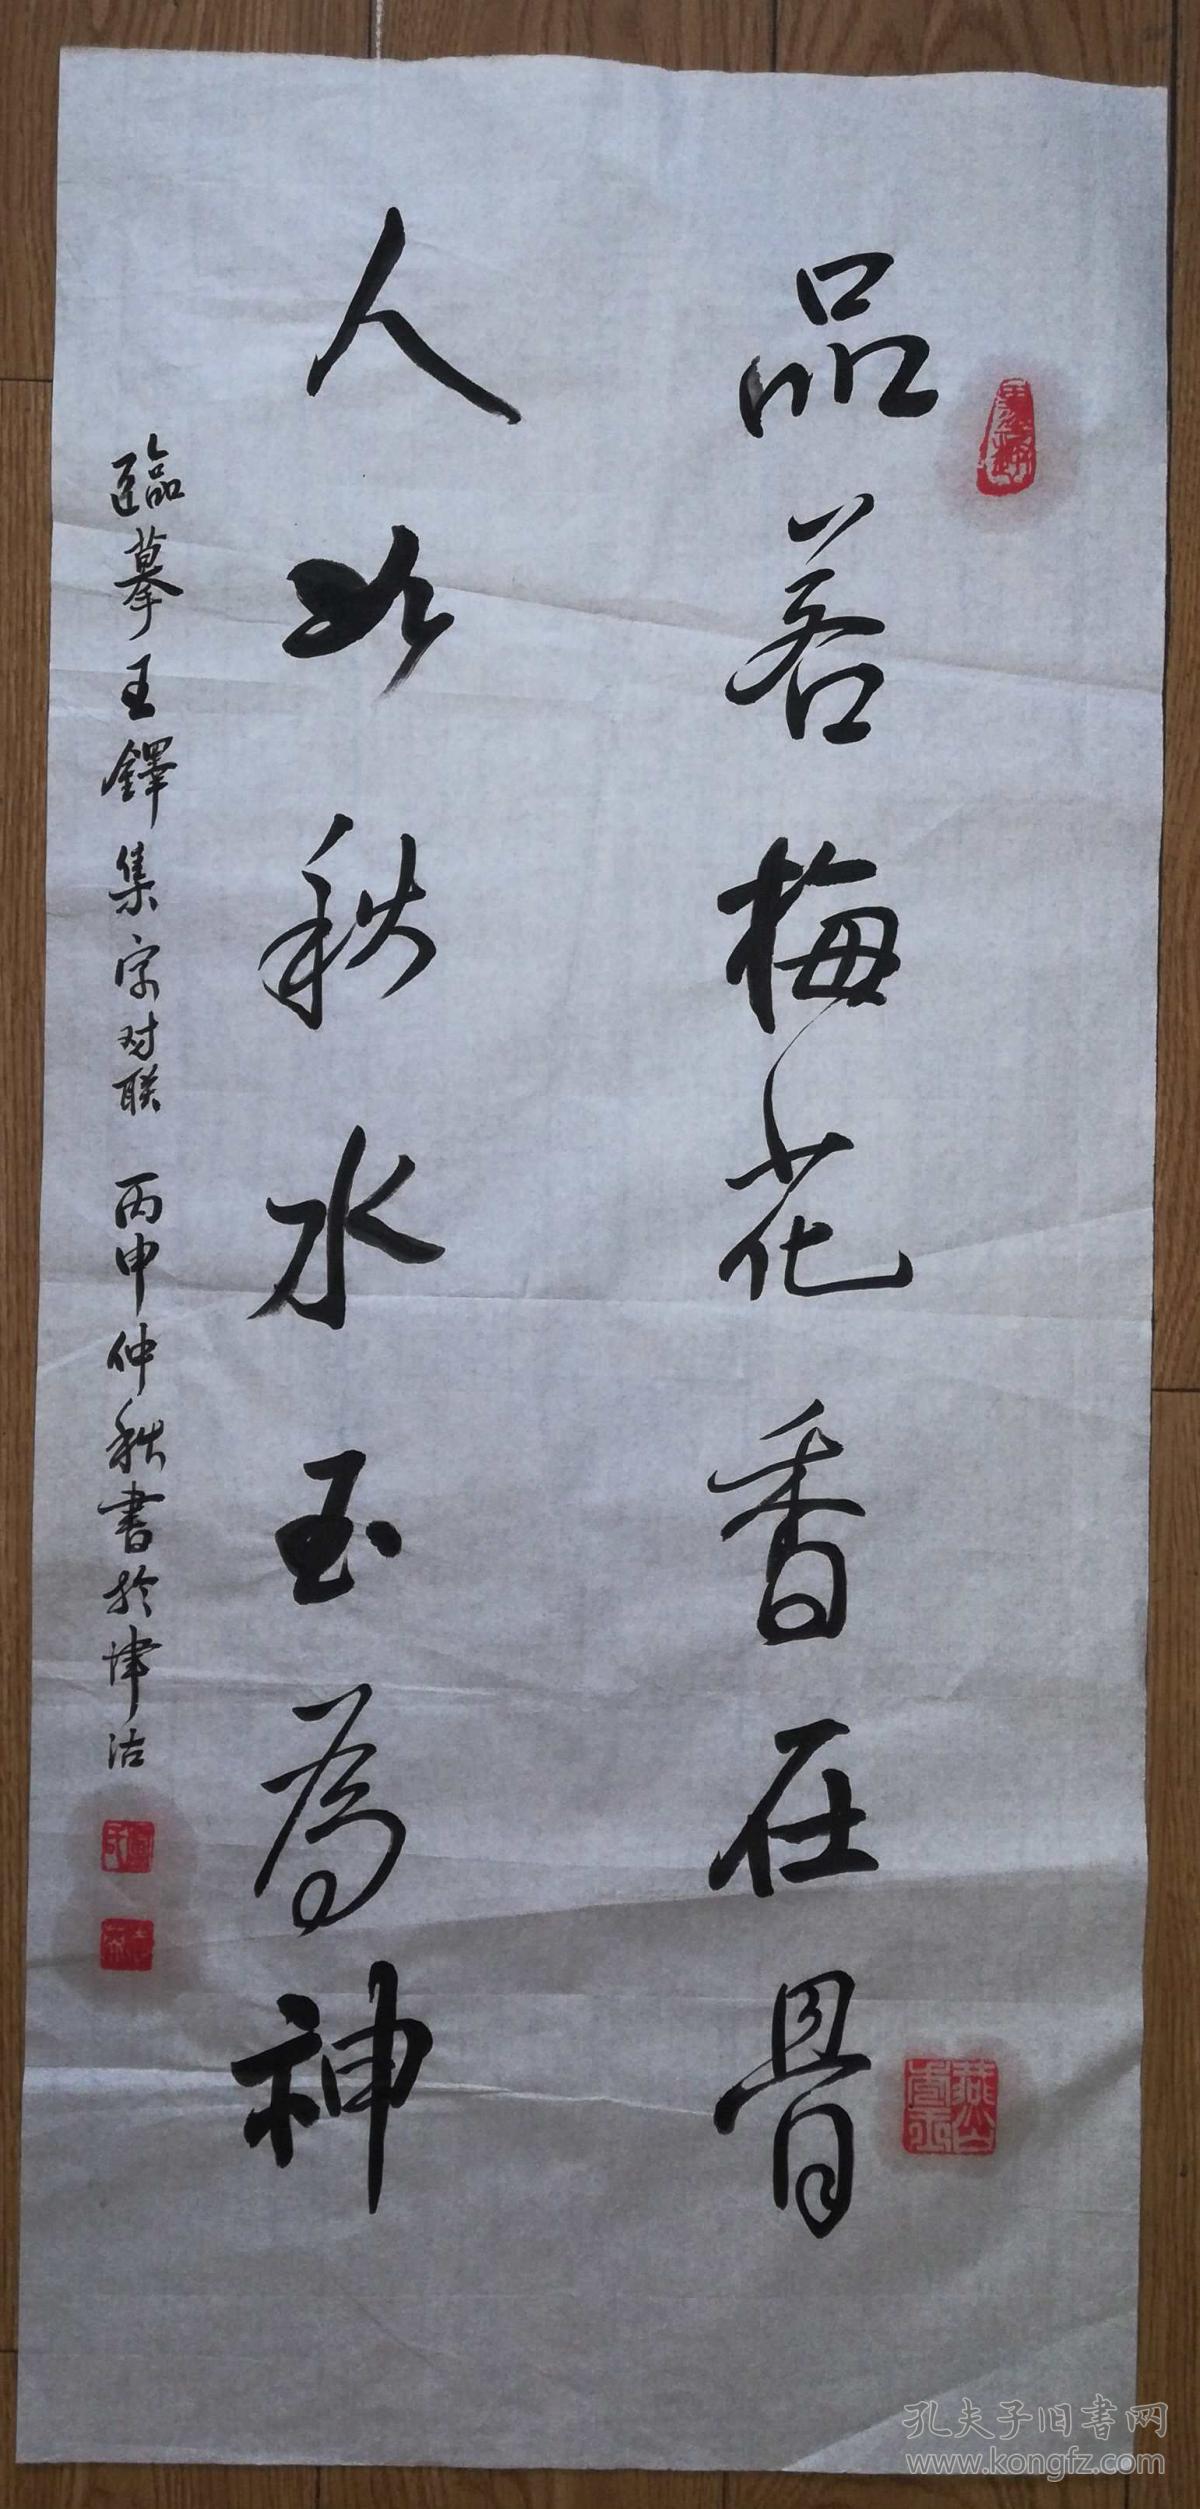 品若梅花香在骨
人如秋水玉為神
臨摹王鐸集字对联 丙申仲秋書於津沽
孔夫子旧书网
www.kongfz.com